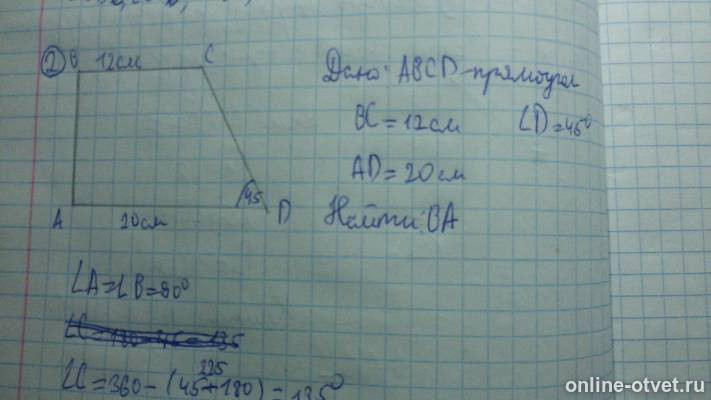 2) B 12см C
Дано: ABCD-прямоугол
BC=12см ∠D=45°
AD=20см
Найти: BA
45
A 20см D
∠A=∠B=90°
∠C=180-45=135
225
∠C=360-(45+180)=135°
online-otvet.ru